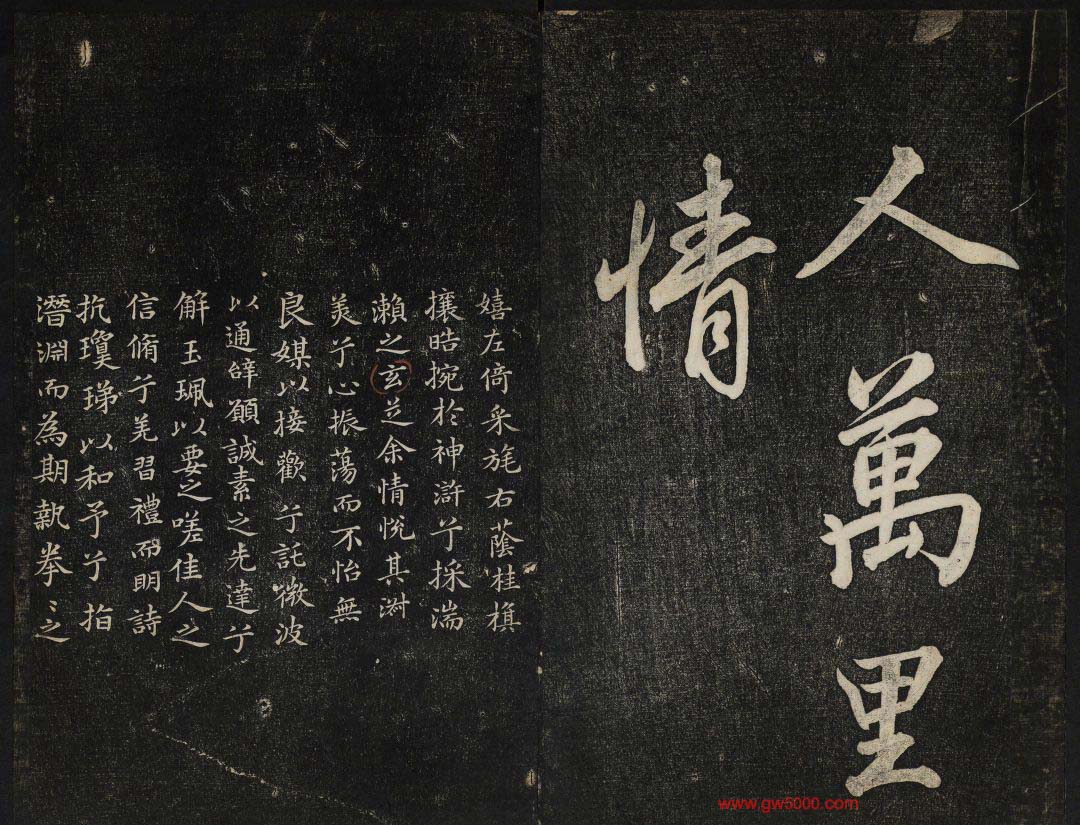 人萬里
情
嬉左倚采旄右蔭桂旗
攘皓捥於神滸兮採湍
瀨之玄芝余情悅其淑
美兮心振蕩而不怡無
良媒以接歡兮託微波
以通辭願誠素之先達兮
解玉珮以要之嗟佳人之
信脩兮羌習禮而明詩
抗瓊珶以和予兮指
潛淵而為期執拳〻之
www.gw5000.com